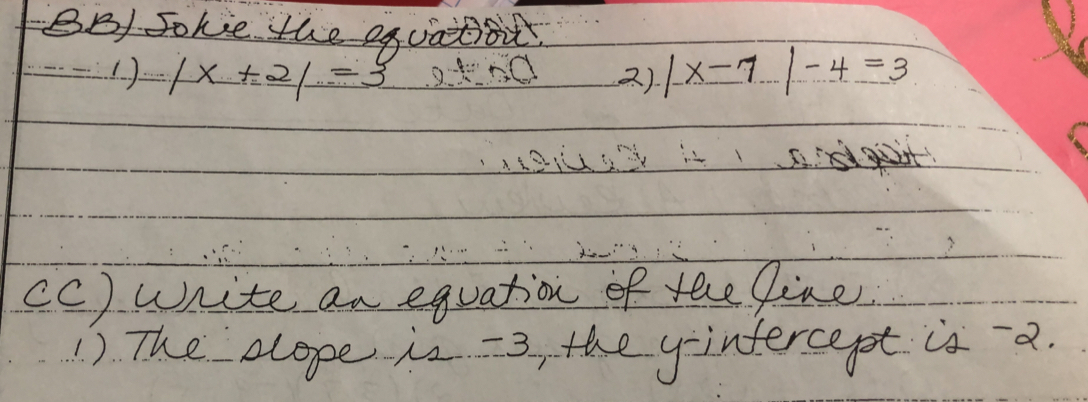 BB) Solve the equation.
1) |x+2| = 3 2) |x-7|-4=3
CC) Write an equation of the line.
1) The slope is -3, the y-intercept is -2.